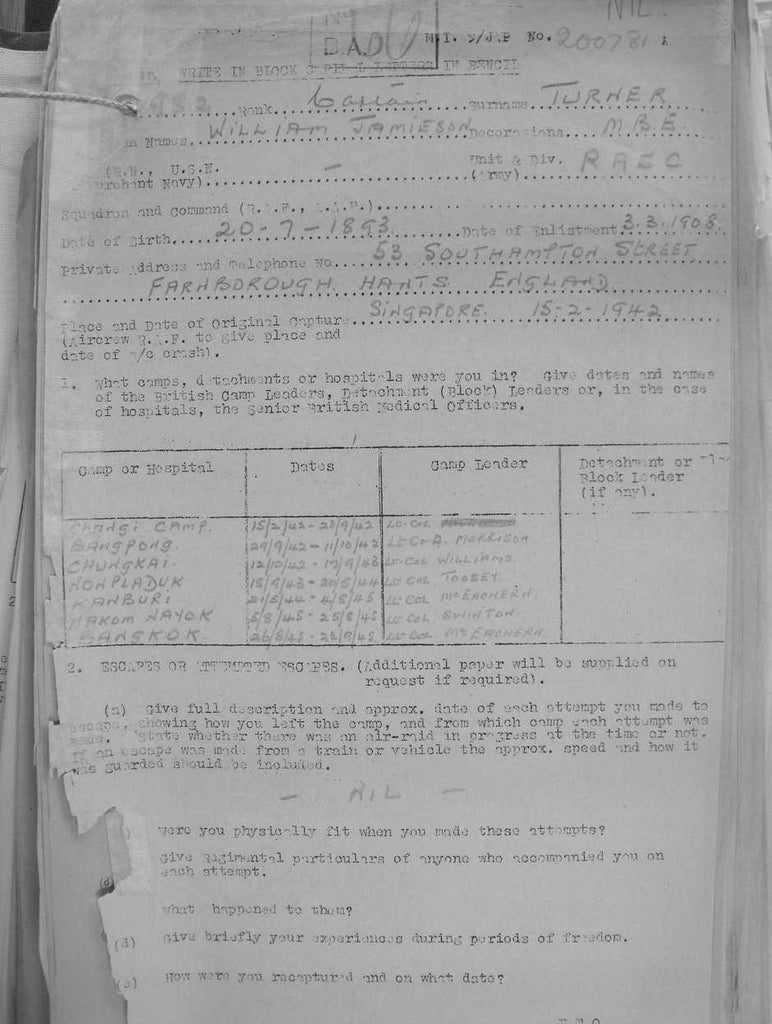 NIL.
B.A.O M.I. 9/J.P No. 200781 A
WRITE IN BLOCK LETTERS IN PENCIL
Rank... Captain surname... TURNER
Names... WILLIAM JAMIESON Decorations... M.B.E.
(R.N., U.S.N. — Unit & Div. RAEC
Merchant Navy)... (Army)...
Squadron and Command (R.A.F., A.A.F.)...
Date of Birth... 20-7-1893... Date of Enlistment 3.3.1908
Private Address and Telephone No... 53 SOUTHAMPTON STREET
FARNBOROUGH HANTS ENGLAND
Place and Date of Original Capture... SINGAPORE. 15-2-1942
(Aircrew R.A.F. to give place and
date of a/c crash).
1. What camps, detachments or hospitals were you in? Give dates and names
of the British Camp Leaders, Detachment (Block) Leaders or, in the case
of hospitals, the Senior British Medical Officers.
Camp or Hospital Dates Camp Leader Detachment or
Block Leader
(if any).
CHANGI CAMP. 15/2/42 - 28/9/42 Lt-Col
BANGPONG. 29/9/42 - 11/10/42 Lt-Col MORRISON
CHUNGKAI. 12/10/42 - 17/9/43 Lt-Col WILLIAMS
NONPLADUK 18/9/43 - 20/5/44 Lt Col TOOSEY.
KANBURI 21/5/44 - 4/8/45 Lt-Col McEACHERN.
NAKOM NAYOK 5/8/45 - 25/8/45 Lt-Col SWINTON.
BANGKOK. 26/8/45 - Lt-Col McEACHERN.
2. ESCAPES OR ATTEMPTED ESCAPES. (Additional paper will be supplied on
request if required).
(a) Give full description and approx. date of each attempt you made to
escape, showing how you left the camp, and from which camp each attempt was
made. State whether there was an air-raid in progress at the time or not.
If an escape was made from a train or vehicle the approx. speed and how it
was guarded should be included.
- NIL -
Were you physically fit when you made these attempts?
Give Regimental particulars of anyone who accompanied you on
each attempt.
What happened to them?
(d) Give briefly your experiences during periods of freedom.
(e) How were you recaptured and on what date?
P.T.O.